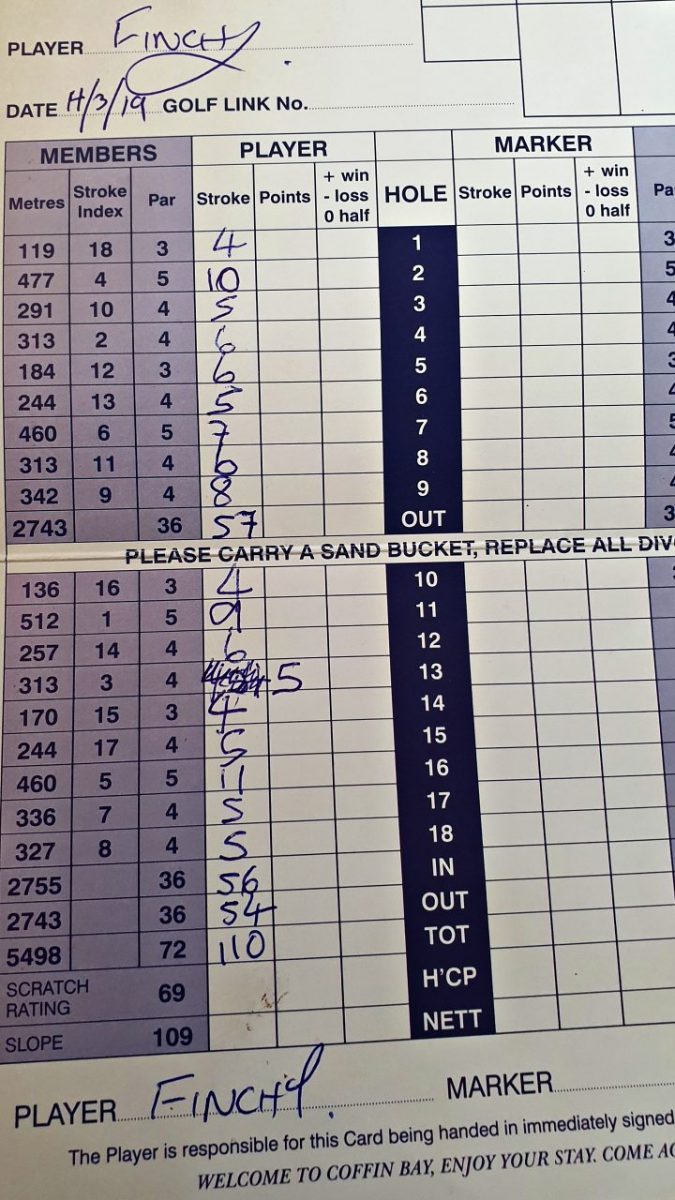 PLAYER FINCHY.
DATE 11/3/19 GOLF LINK No.
MEMBERS PLAYER MARKER
Metres Stroke Index Par Stroke Points + win - loss 0 half HOLE Stroke Points + win - loss 0 half Pa
119 18 3 4 1 3
477 4 5 10 2 5
291 10 4 5 3 4
313 2 4 6 4 4
184 12 3 6 5 3
244 13 4 5 6 4
460 6 5 7 7 5
313 11 4 6 8 4
342 9 4 8 9 4
2743 36 57 OUT 3
PLEASE CARRY A SAND BUCKET, REPLACE ALL DIV
136 16 3 4 10
512 1 5 9 11
257 14 4 6 12
313 3 4 5 13
170 15 3 4 14
244 17 4 5 15
460 5 5 11 16
336 7 4 5 17
327 8 4 5 18
2755 36 56 IN
2743 36 54 OUT
5498 72 110 TOT
SCRATCH RATING 69 H'CP
SLOPE 109 NETT
PLAYER FINCHY. MARKER
The Player is responsible for this Card being handed in immediately signed
WELCOME TO COFFIN BAY, ENJOY YOUR STAY. COME AG